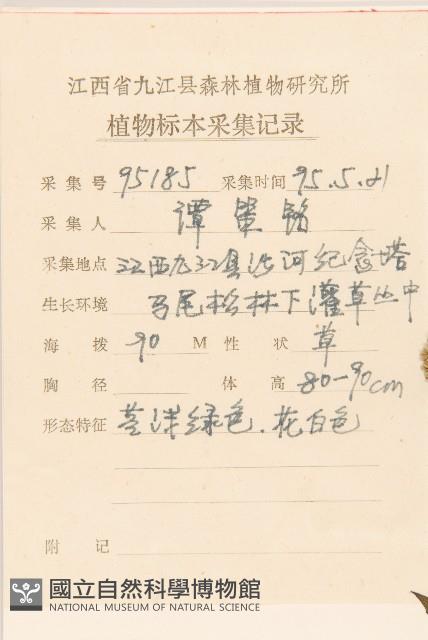 江西省九江县森林植物研究所
植物标本采集记录
采集号 95185 采集时间 95.5.21
采集人 谭策铭
采集地点 江西九江县沙河纪念塔
生长环境 马尾松林下灌草丛中
海拨 90 M 性状 草
胸径 体高 80-90cm
形态特征 茎淡绿色.花白色
附记
國立自然科學博物館
NATIONAL MUSEUM OF NATURAL SCIENCE